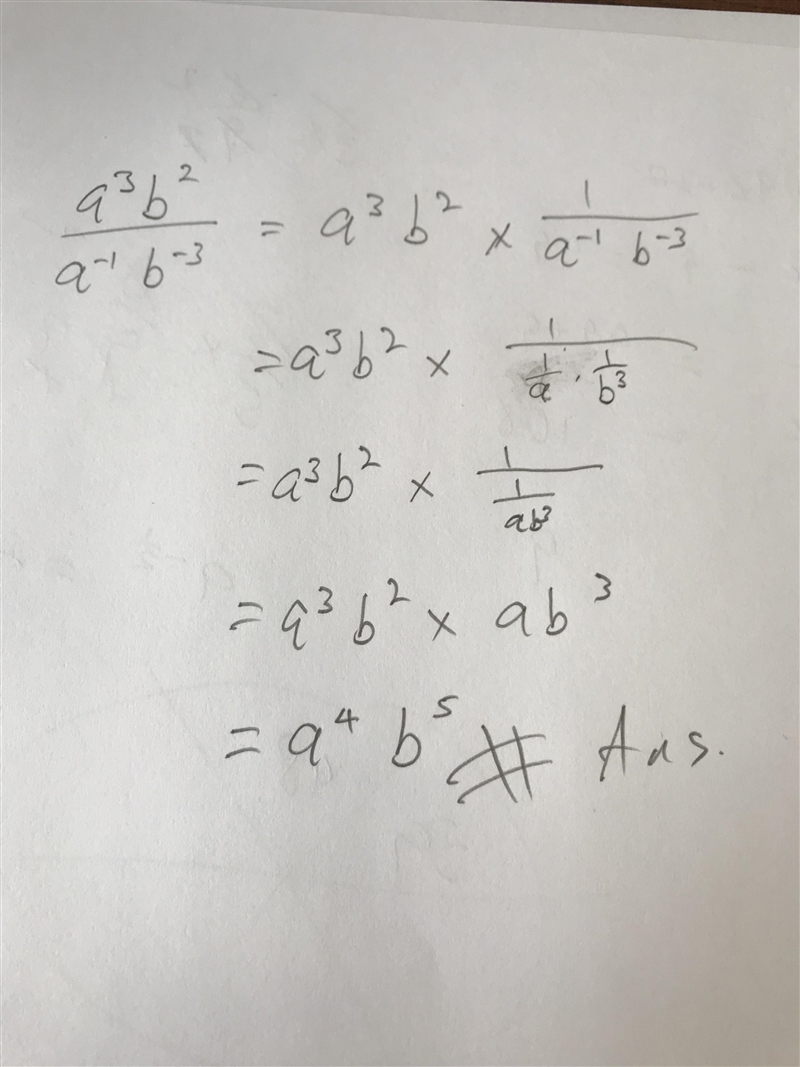 a³b² / a⁻¹ b⁻³ = a³ b² × 1 / a⁻¹ b⁻³
= a³b² × 1 / (1/a · 1/b³)
= a³b² × 1 / (1/ab³)
= a³ b² × ab³
= a⁴ b⁵ # Ans.